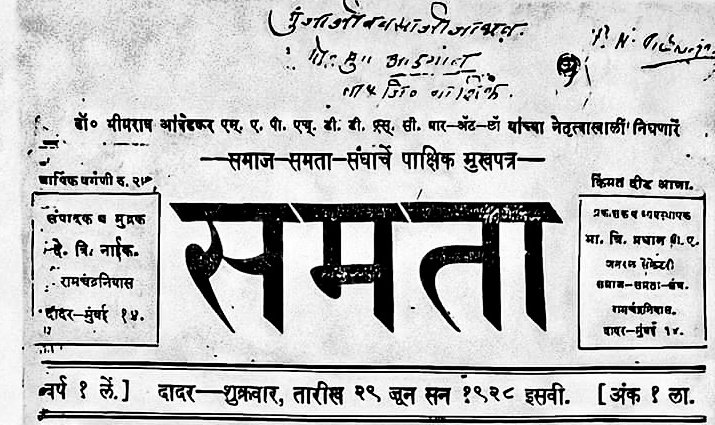 डॉ० भीमराव आंबेडकर एम्. ए. पी. एच्. डी. डी. एस्. सी. बार—ॲट—लॉ यांच्या नेतृत्वाखालीं निघणारें
—समाज—समता—संघाचें पाक्षिक मुखपत्र—
वार्षिक वर्गणी रु.
किंमत दीड आणा.
संपादक व मुद्रक
दे. वि. नाईक.
रामचंद्रनिवास
दादर—मुंबई १४.
समता
प्रकाशक व व्यवस्थापक
भा. चि. प्रधान बी. ए.
जनरल सेक्रेटरी
समाज—समता—संघ.
रामचंद्रनिवास.
दादर—मुंबई १४.
वर्ष १ लें.] दादर—शुक्रवार, तारीख २९ जून सन १९२८ इसवी. [अंक १ ला.